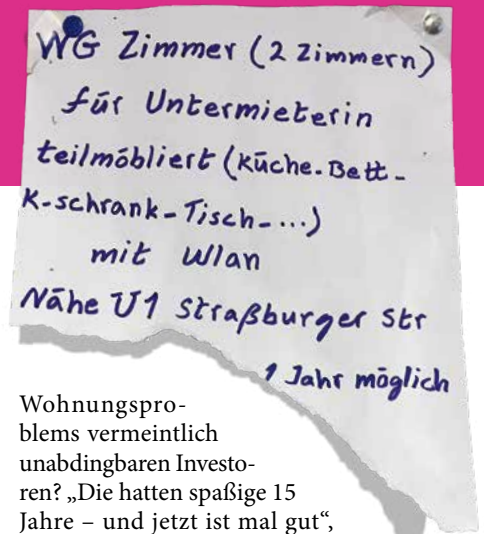 WG Zimmer (2 Zimmern)
für Untermieterin
teilmöbliert (Küche-Bett-
K-schrank-Tisch-...)
mit Wlan
Nähe U1 Straßburger Str
1 Jahr möglich
Wohnungspro-
blems vermeintlich
unabdingbaren Investo-
ren? „Die hatten spaßige 15
Jahre – und jetzt ist mal gut“,